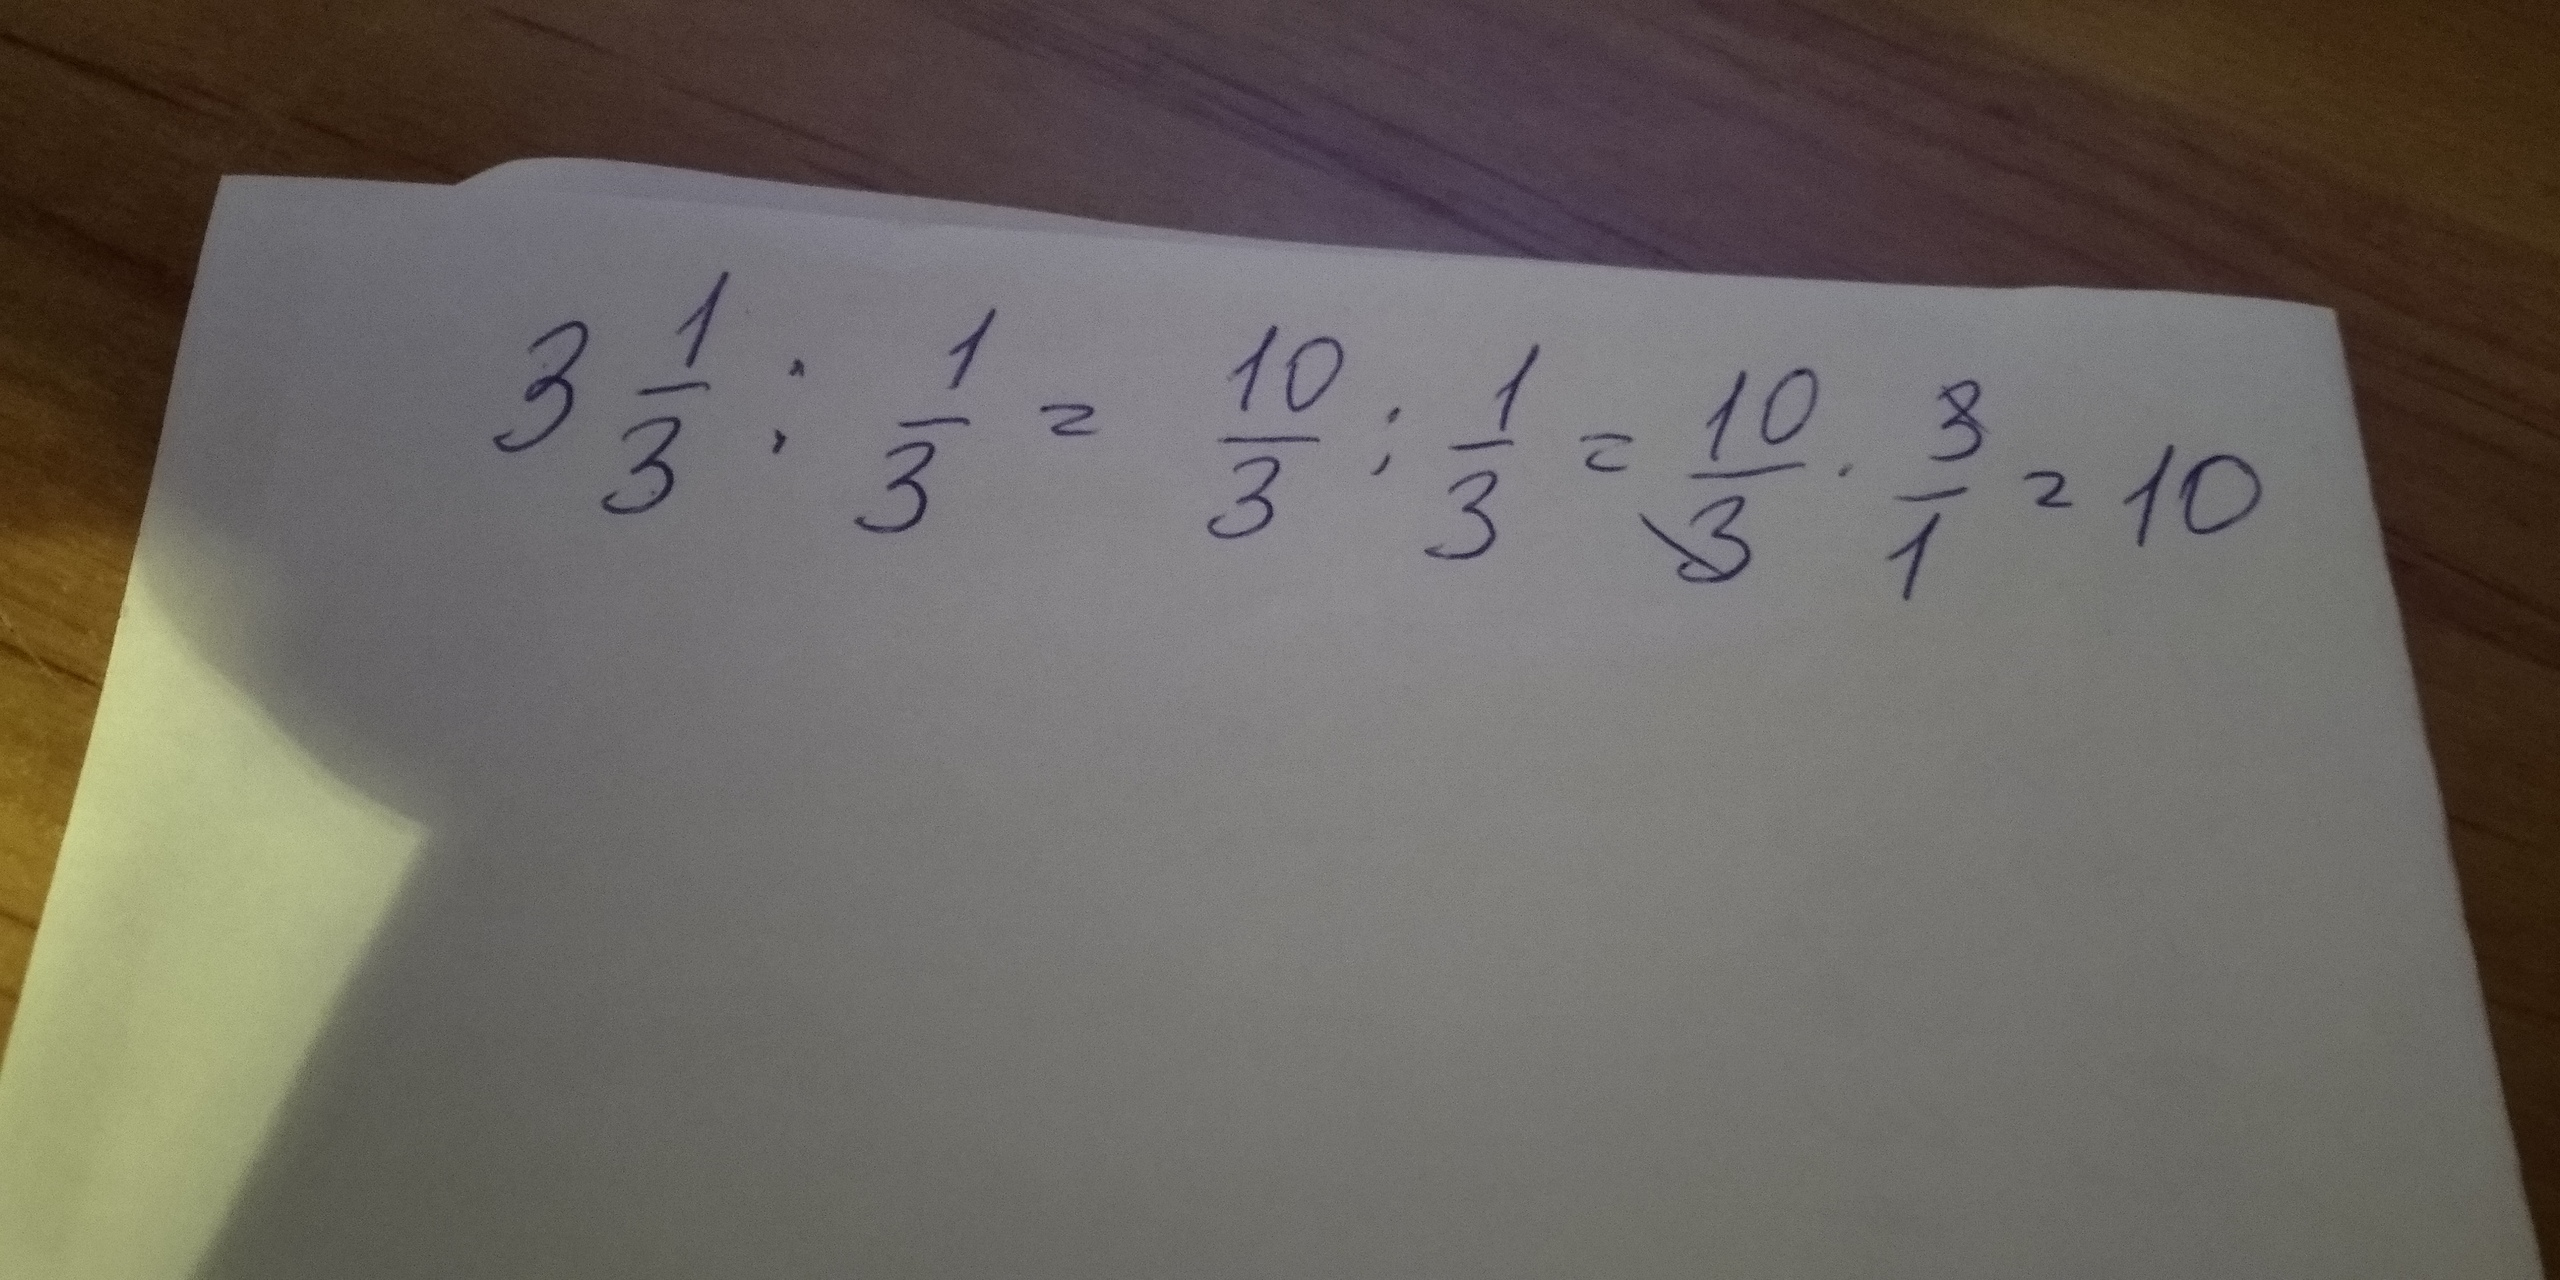 3 1/3 : 1/3 = 10/3 : 1/3 = 10/3 · 3/1 = 10